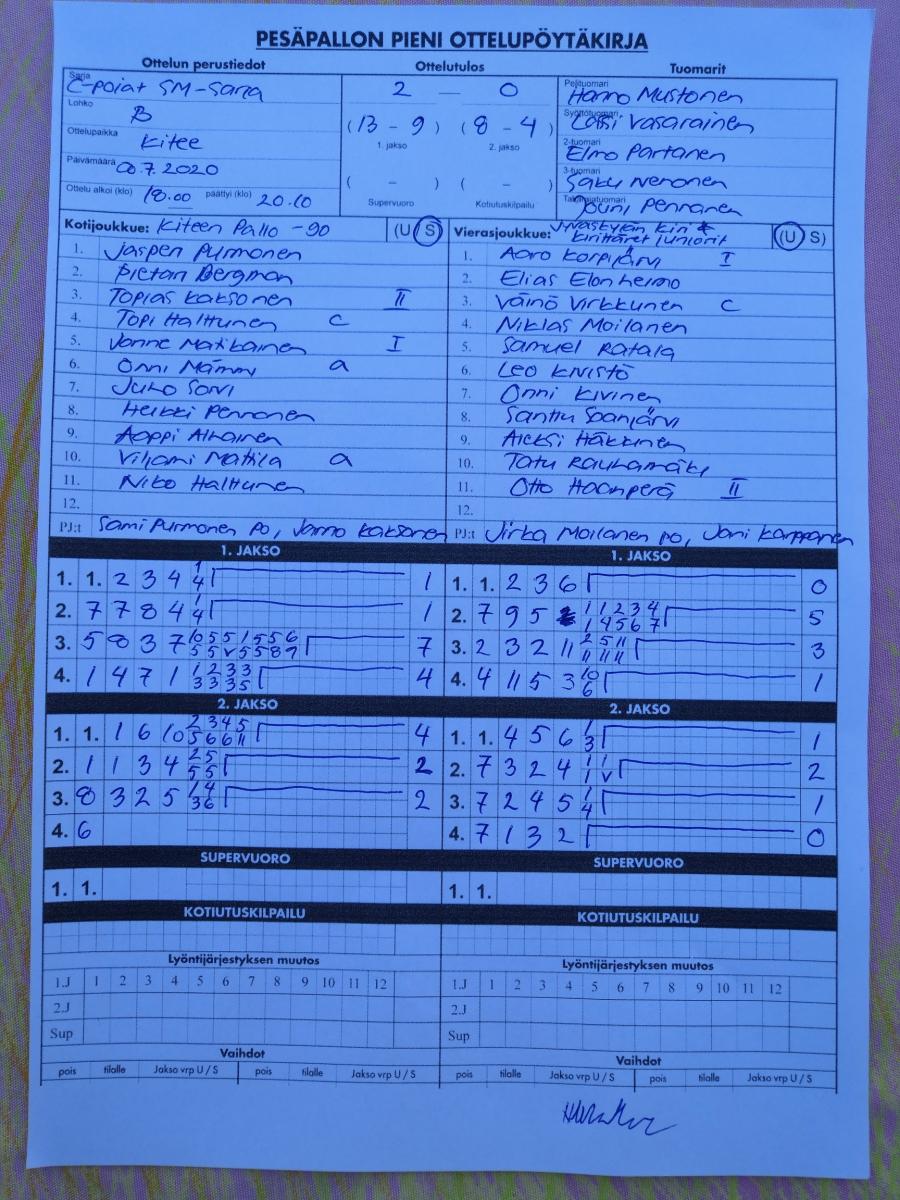 PESÄPALLON PIENI OTTELUPÖYTÄKIRJA
Ottelun perustiedot Ottelutulos Tuomarit
Sarja C-pojat SM-Sarja 2 — 0 Pelituomari Hanno Mustonen
Lohko B (13 - 9) (8 - 4) Syöttötuomari Lassi Vasarainen
1. jakso 2. jakso
Ottelupaikka Kitee 2-tuomari Elmo Partanen
Päivämäärä 7.2020 ( - ) ( - ) 3-tuomari Saku Nenonen
Ottelu alkoi (klo) 18.00 päättyi (klo) 20.10 Supervuoro Kotiutuskilpailu Jouni Pennanen
Kotijoukkue: Kiteen Pallo -90 (U S) Vierasjoukkue: Jyväskylän Kirittäret juniorit (U S)
1. Jasper Purmonen 1. Aaro Korpijärvi I
2. Pietari Bergman 2. Elias Elonheimo
3. Topias Kaksonen II 3. Väinö Virkkunen C
4. Topi Halttunen C 4. Niklas Moilanen
5. Janne Matikainen I 5. Samuel Ratala
6. Onni Mämmi a 6. Leo Kivistö
7. Juho Sorvi 7. Onni Kivinen
8. Heikki Pennanen 8. Santtu Soanjärvi
9. Aappi Aihainen 9. Aleksi Häkkinen
10. Viljami Mattila a 10. Tatu Rauhamäki
11. Niko Halttunen 11. Otto Haanperä II
12. 12.
PJ:t Sami Purmonen PO, Janno Kaksonen PJ:t Jirka Moilanen PO, Jani Karppanen
1. JAKSO 1. JAKSO
1. 1. 2 3 4 1 4 1 1. 1. 2 3 6 0
2. 7 7 8 4 4 1 4 1 2. 7 9 5 1 1 2 3 4 1 4 5 6 7 5
3. 5 8 3 7 10 5 5 1 5 5 6 5 5 v 5 5 8 9 7 3. 2 3 2 11 2 5 11 11 11 11 3
4. 1 4 7 1 1 2 3 3 3 3 3 5 4 4. 4 11 5 3 10 6 1
2. JAKSO 2. JAKSO
1. 1. 1 6 10 2 3 4 5 5 6 6 11 4 1. 1. 4 5 6 1 3 1
2. 1 1 3 4 2 5 5 5 2 2. 7 3 2 4 1 1 1 v 2
3. 8 3 2 5 1 4 3 6 2 3. 7 2 4 5 1 4 1
4. 6 4. 7 1 3 2 0
SUPERVUORO SUPERVUORO
1. 1. 1. 1.
KOTIUTUSKILPAILU KOTIUTUSKILPAILU
Lyöntijärjestyksen muutos Lyöntijärjestyksen muutos
1.J 1 2 3 4 5 6 7 8 9 10 11 12 1.J 1 2 3 4 5 6 7 8 9 10 11 12
2.J 2.J
Sup Sup
Vaihdot Vaihdot
pois tilalle Jakso vrp U / S pois tilalle Jakso vrp U / S pois tilalle Jakso vrp U / S pois tilalle Jakso vrp U / S